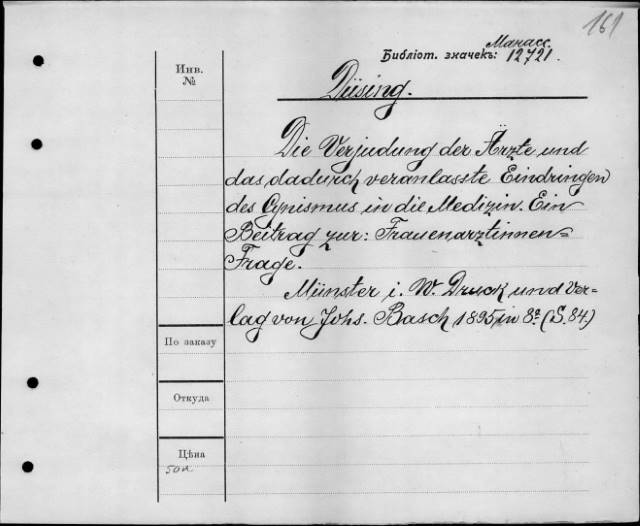 161
Манасс.
Библіот. значекъ: 12721.
Инв.
№
Düsing.
Die Verjudung der Ärzte und
das dadurch veranlasste Eindringen
des Cynismus in die Medizin. Ein
Beitrag zur: Frauenarztinnen=
Frage.
Münster i. W. Druck und Ver=
lag von Johs. Basch 1895 in 8º (S. 84.)
По заказу
Откуда
Цѣна